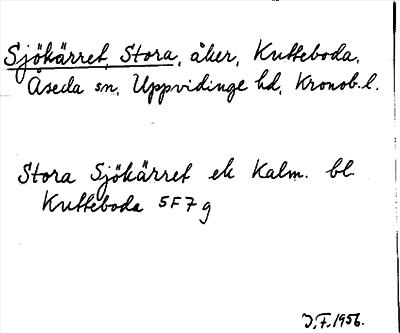 Sjökärret, Stora, åker, Kutteboda,
Åseda sn, Uppvidinge hd, Kronob. l.
Stora Sjökärret ek Kalm. bl.
Kutteboda 5F7g
J.F. 1956.